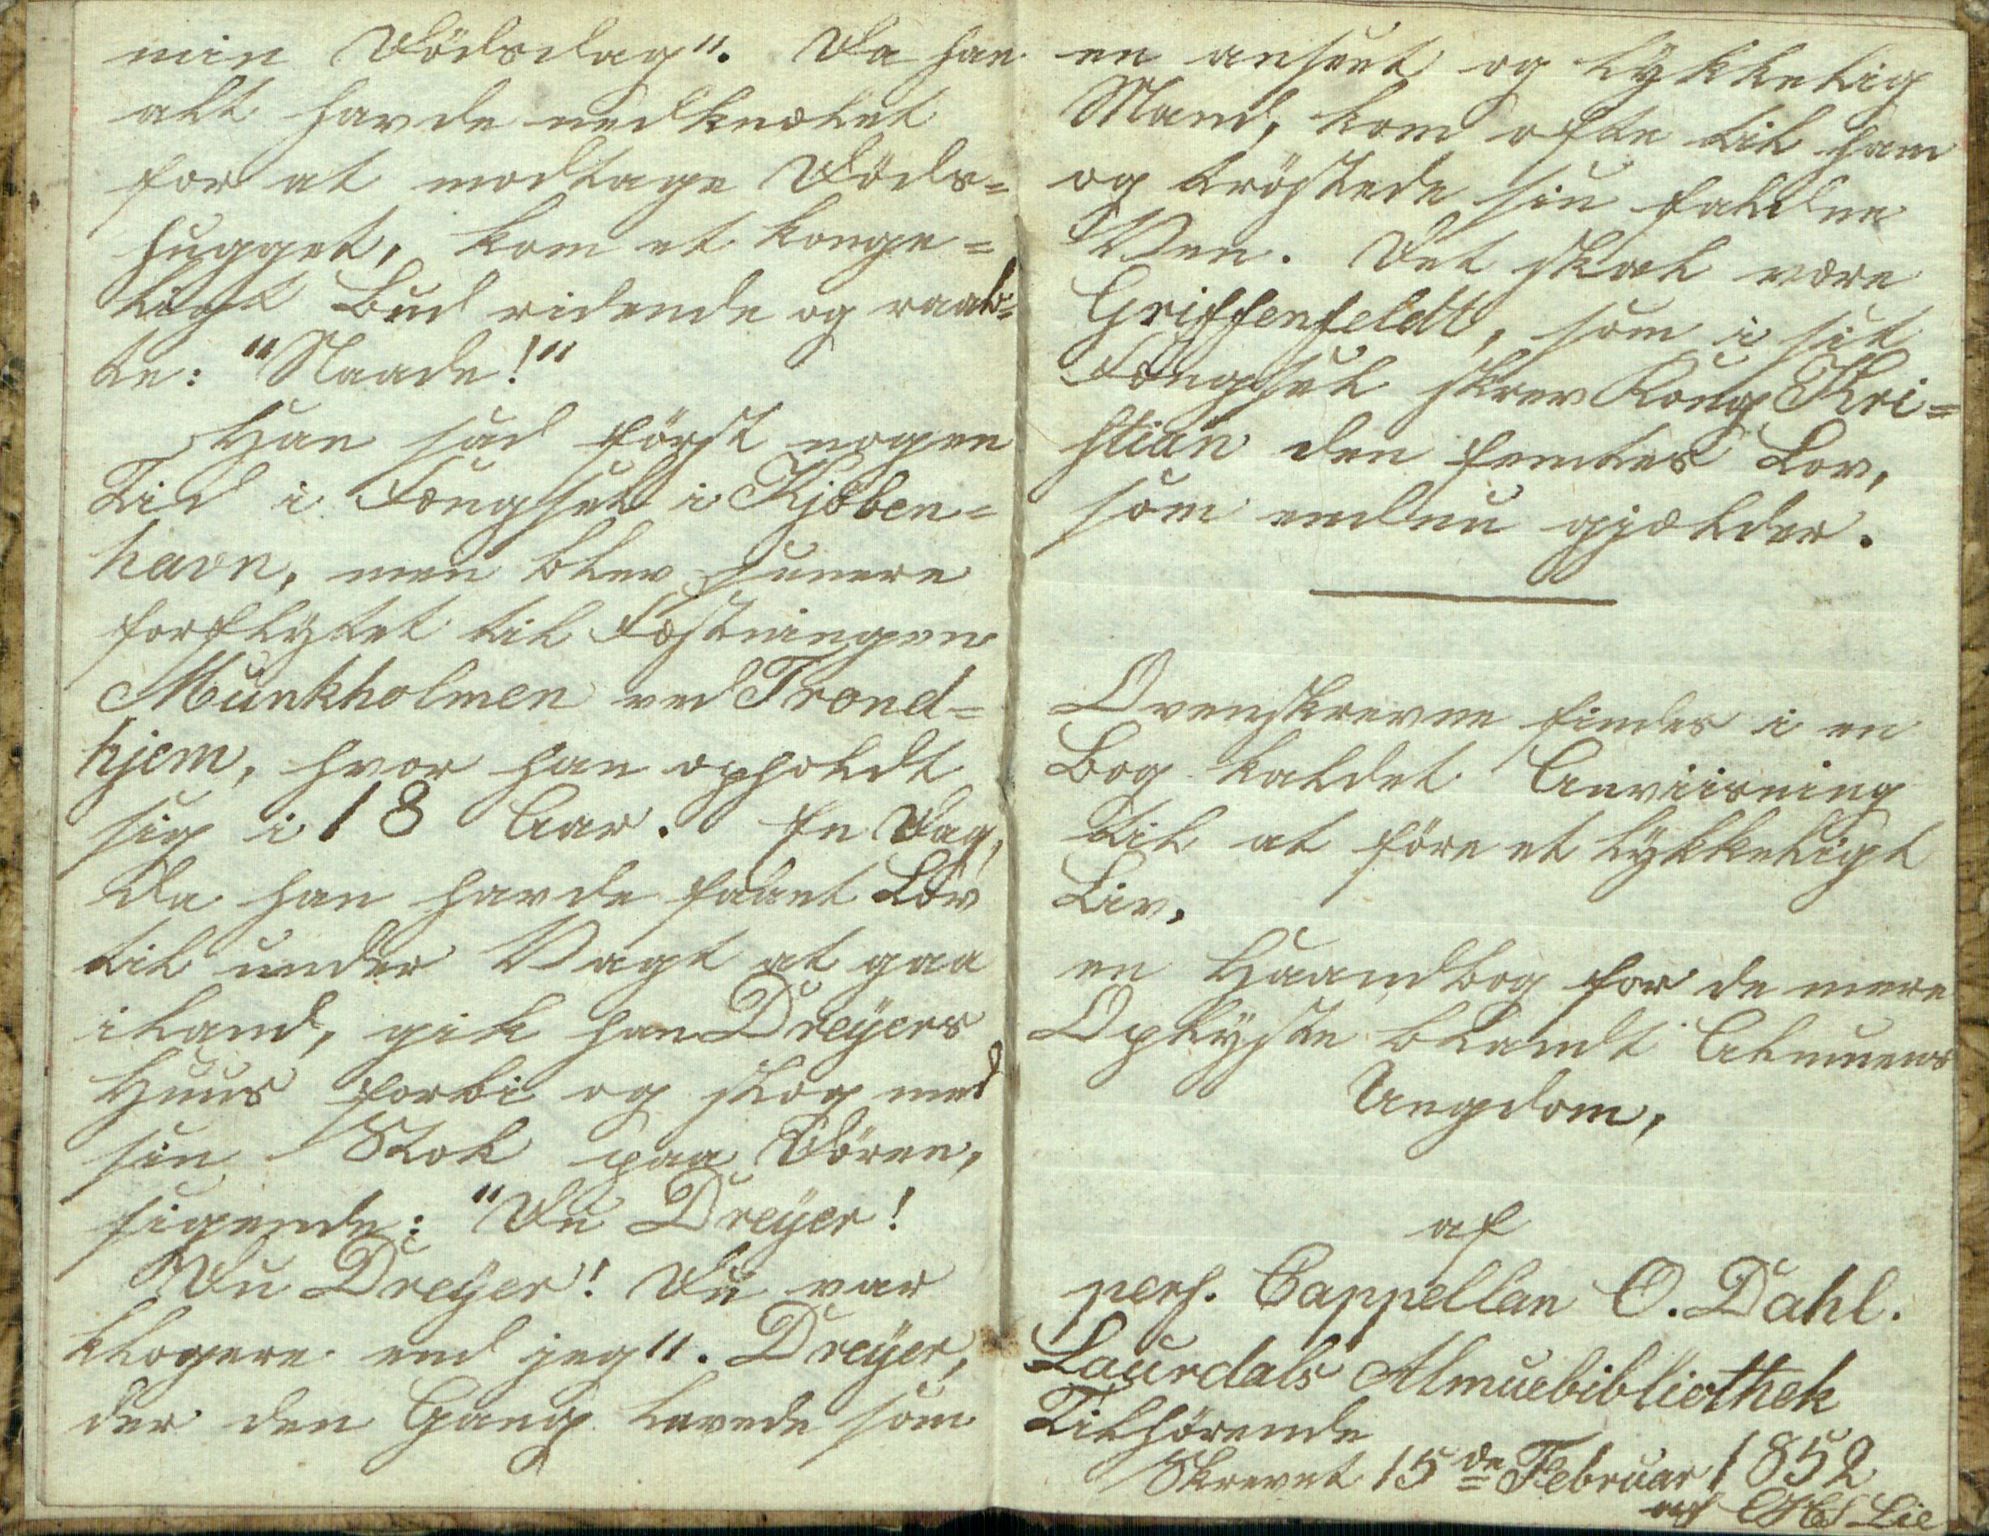 min Dødsdag". Da han
alt havde nedknælet
for at modtage Døds=
hugget, kom et konge=
ligt Bud ridende og raab=
te: "Naade!"
Han sad først nogen
Tid i Fængsel i Kjöben=
havn, men blev senere
forflyttet til Fæstningen
Munkholmen ved Trond=
hjem, hvor han opholdt
sig i 18 Aar. En Dag,
da han havde faaet Lov
til under Vagt at gaa
iland, gik han Dreyers
Huus forbi og slog med
sin Stok paa Døren,
sigende: "Du Dreyer!
Du Dreyer! Du var
klogere end jeg". Dreyer,
der den Gang levede som
en anseet og lykkelig
Mand, kom ofte til ham
og trøstede sin faldne
Ven. Det skal være
Griffenfeldt, som i sit
Fængsel skrev Kong Kri=
stian den femtes Lov,
som endnu gjælder.
Ovenskrevne findes i en
Bog kaldet Anviisning
til at føre et lykkeligt
Liv,
en Haandbog for de mere
Oplyste blandt Almuens
Ungdom,
af
pers. Cappellan O. Dahl.
Laurdals Almuebibliothek
Tilhørende
Skrevet 15de Februar 1852
af Lie